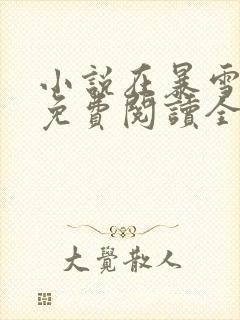 小説在暴雪
免費閱讀全
大覺散人